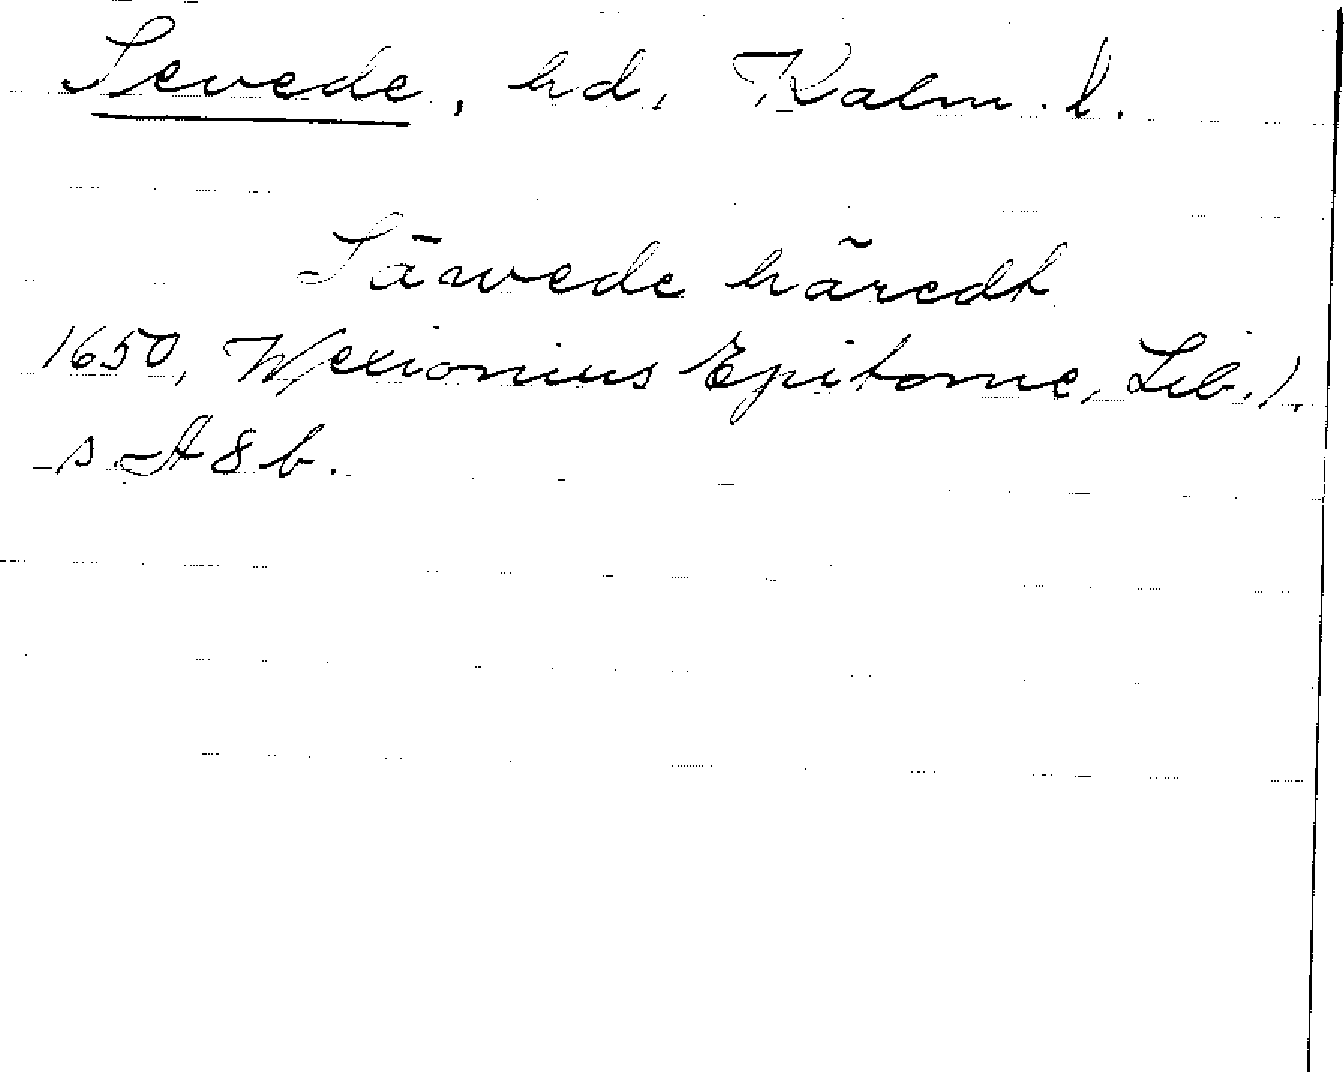 Sevede, hd, Kalm. l.
Säwede häredt
1650, Wexionius Epitome, Lib. 1.
s. A 8 b.